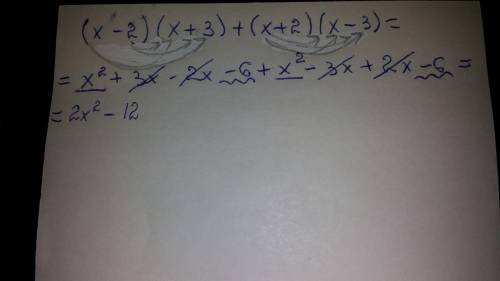 (x-2)(x+3)+(x+2)(x-3)=
= x²+3x-2x-6+x²-3x+2x-6=
= 2x²-12